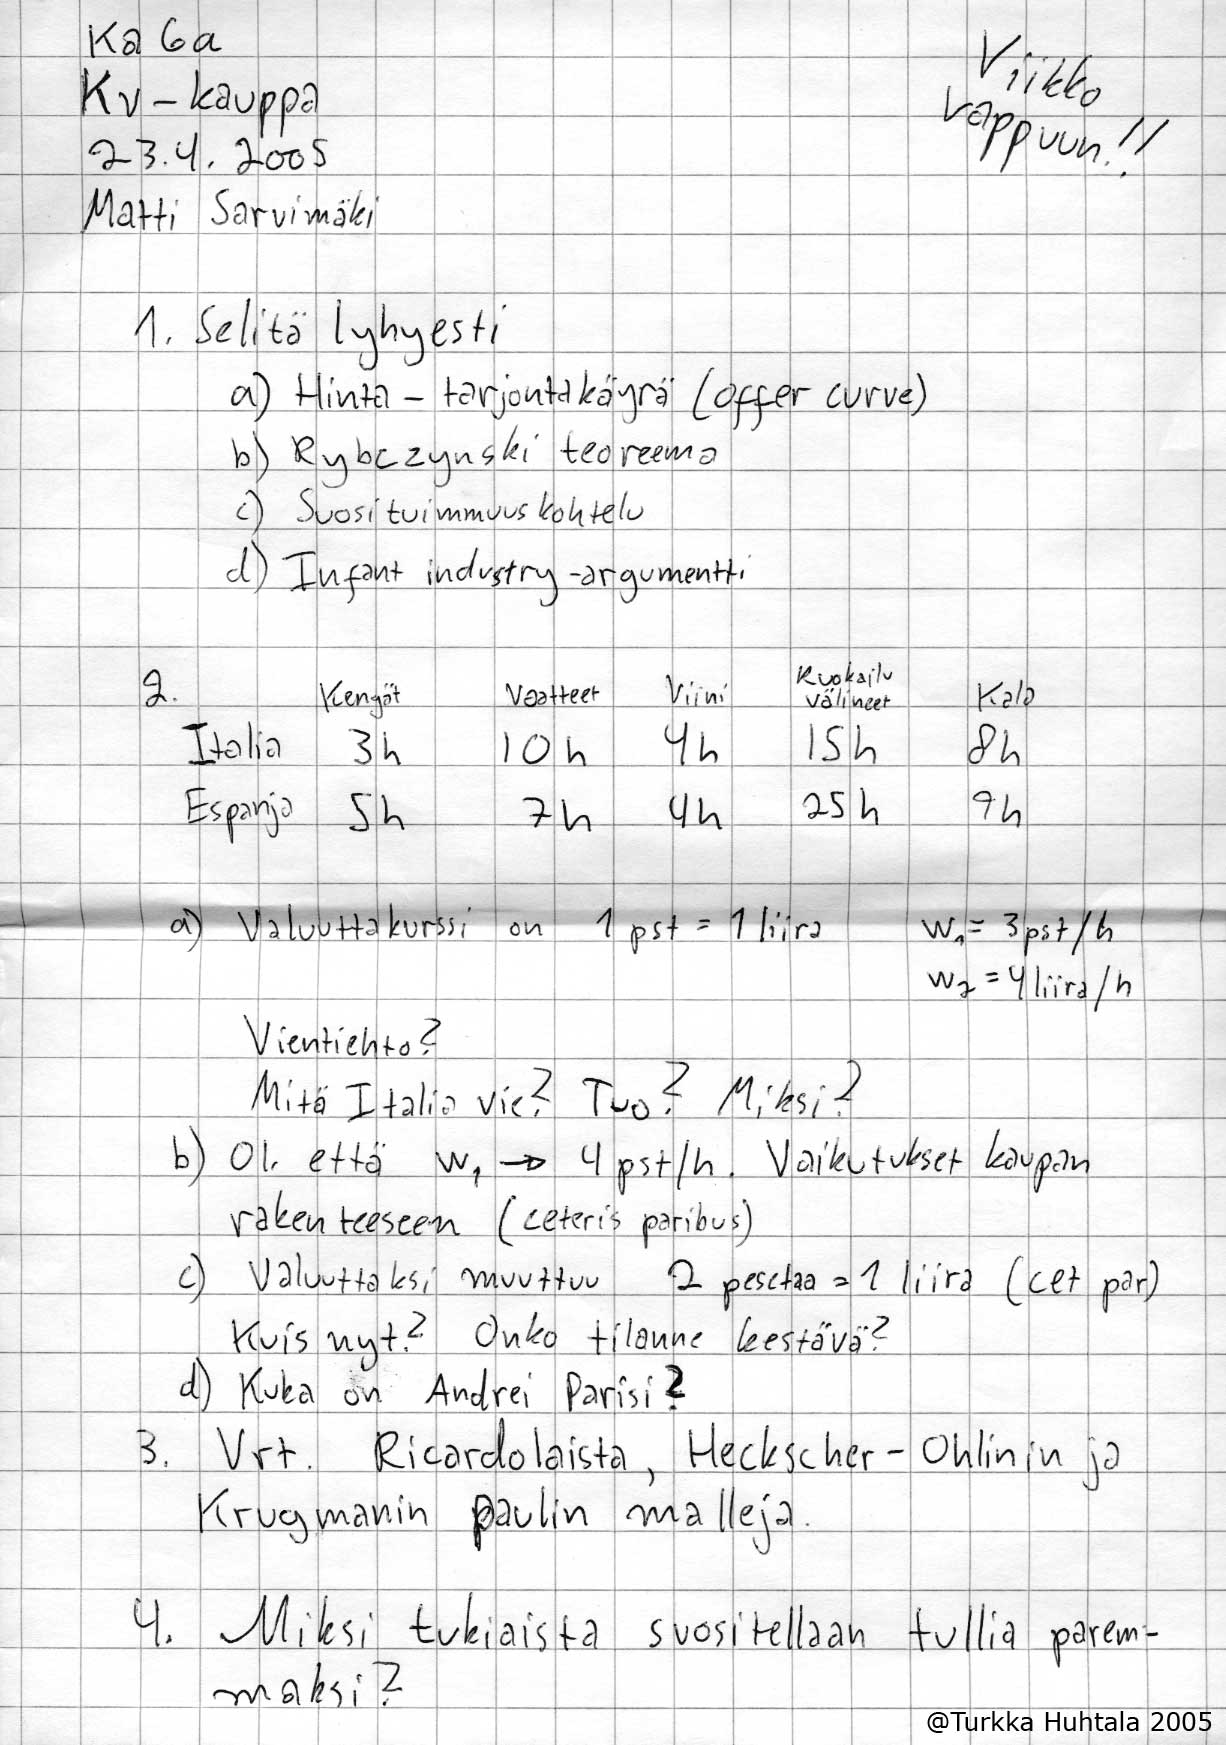 Ka 6a
Kv-kauppa
23.4.2005
Matti Sarvimäki
Viikko
vappuun!!
1. Selitä lyhyesti
a) Hinta-tarjontakäyrä (offer curve)
b) Rybczynski teoreema
c) Suosituimmuuskohtelu
d) Infant industry-argumentti
2. Kengät Vaatteet Viini Ruokailu välineet Kala
Italia 3h 10h 4h 15h 8h
Espanja 5h 7h 4h 25h 9h
a) Valuuttakurssi on 1 pst = 1 liira w₁ = 3 pst/h
w₂ = 4 liira/h
Vientiehto?
Mitä Italia vie? Tuo? Miksi?
b) Ol. että w₁ → 4 pst/h. Vaikutukset kaupan
rakenteeseen (ceteris paribus)
c) Valuuttaksi muuttuu 2 pesetaa = 1 liira (cet par)
Kuis nyt? Onko tilanne kestävä?
d) Kuka on Andrei Parisi?
3. Vrt. Ricardolaista, Heckscher-Ohlinin ja
Krugmanin paulin malleja.
4. Miksi tukiaista suositellaan tullia parem-
maksi?
@Turkka Huhtala 2005